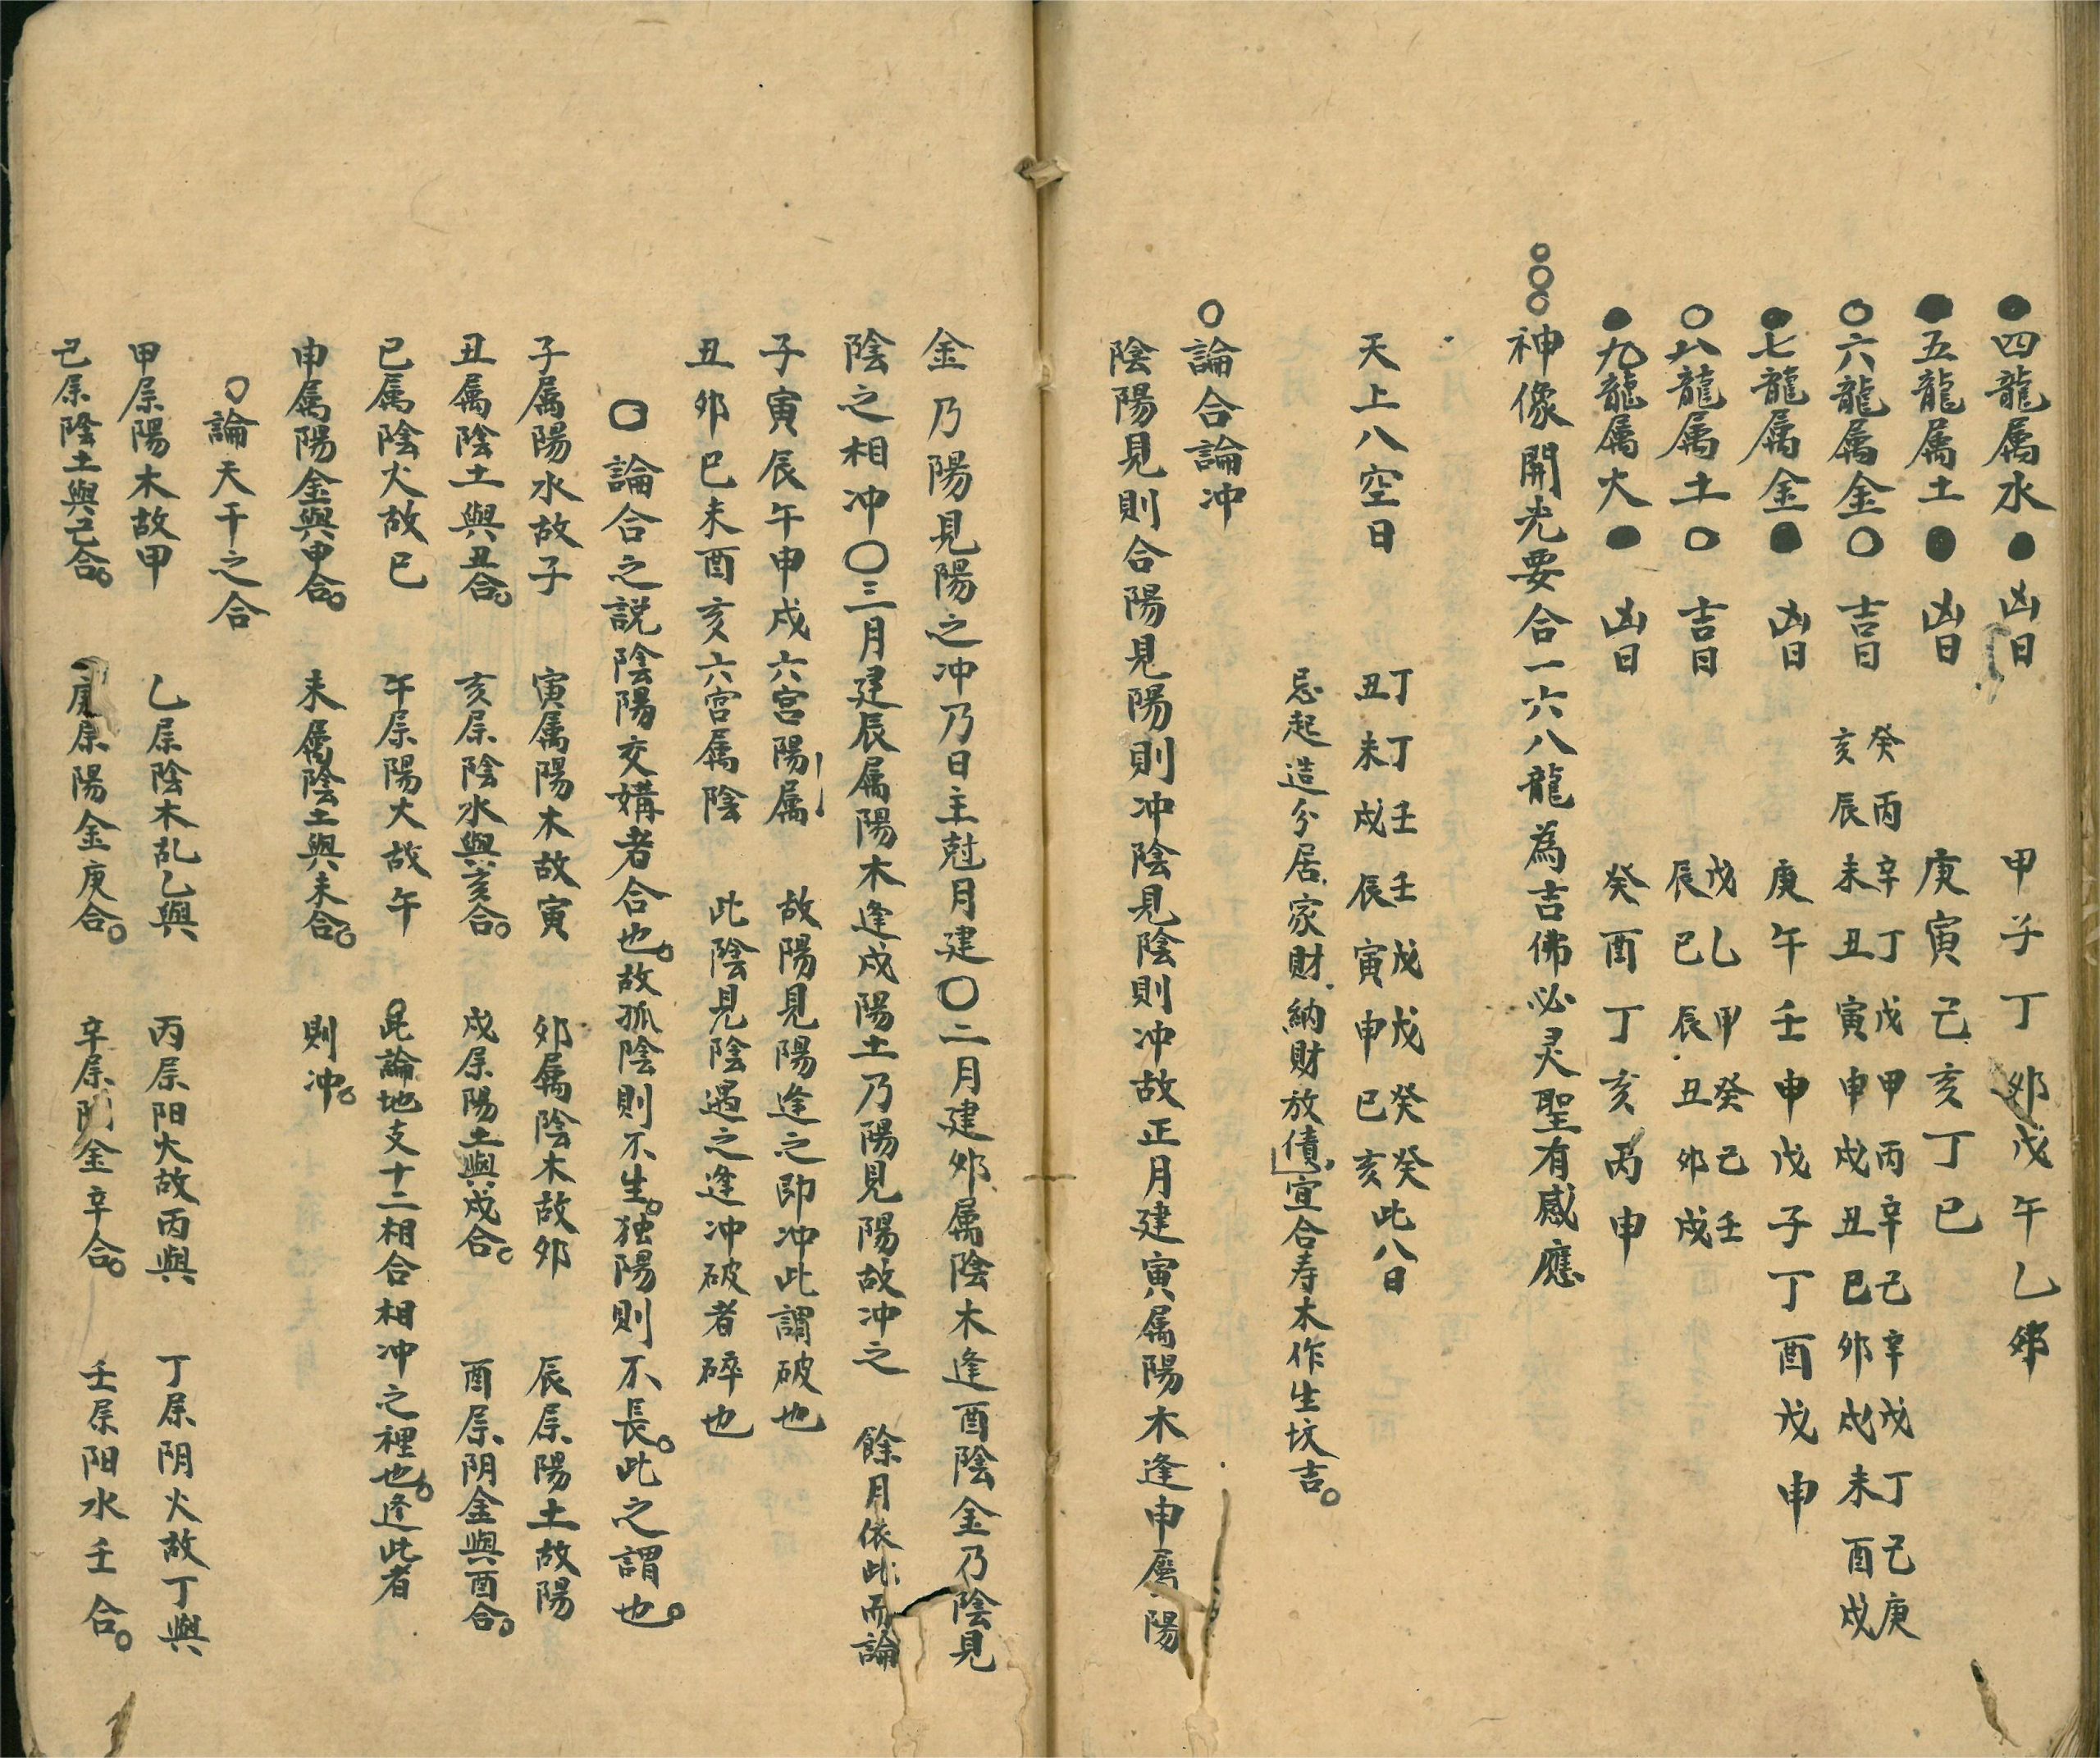 ●四龍属水●凶日　甲子丁卯戊午乙卯
●五龍属土●凶日　庚寅己亥丁巳
○六龍属金○吉日　癸丙辛丁戊甲丙辛己辛戊丁己庚
亥辰未丑寅申戌丑巳卯戌未酉戌
●七龍属金●凶日　庚午壬申戊子丁酉戊申
○八龍属土○吉日　戊乙甲癸己壬
辰巳辰丑卯戌
●九龍属火●凶日　癸酉丁亥丙申
○○○神像開光要合一六八龍為吉佛必灵聖有感應
天上八空日　丁丁壬壬戊戊癸癸
丑未戌辰寅申巳亥此八日
忌起造分居家財納財放債宜合寿木作生坟吉。
○論合論冲
陰陽見則合陽見陽則冲陰見陰則冲故正月建寅属陽木逢申屬陽
金乃陽見陽之冲乃日主尅月建○二月建卯属陰木逢酉陰金乃陰見
陰之相冲○三月建辰属陽木逢戌陽土乃陽見陽故冲之　餘月依此而論
子寅辰午申戌六宮陽属　故陽見陽逢之即冲此謂破也
丑卯巳未酉亥六宮属陰　此陰見陰遇之逢冲破者碎也
○論合之説陰陽交媾者合也。故孤陰則不生。独陽則不長。此之謂也。
子属陽水故子　寅属陽木故寅　卯属陰木故卯　辰屌陽土故陽
丑属陰土與丑合。　亥屌陰水與亥合。　戌屌陽土與戌合。　酉屌阴金與酉合。
巳属陰火故巳　午屌陽火故午　此論地支十二相合相冲之裡也。逢此者
申属陽金與申合。　未属陰土與未合。　則冲。
○論天干之合
甲屌陽木故甲　乙屌陰木乱乙與　丙屌阳火故丙與　丁屌阴火故丁與
己屌陰土與己合。　庚屌陽金庚合。　辛屌阴金辛合。　壬屌阳水壬合。